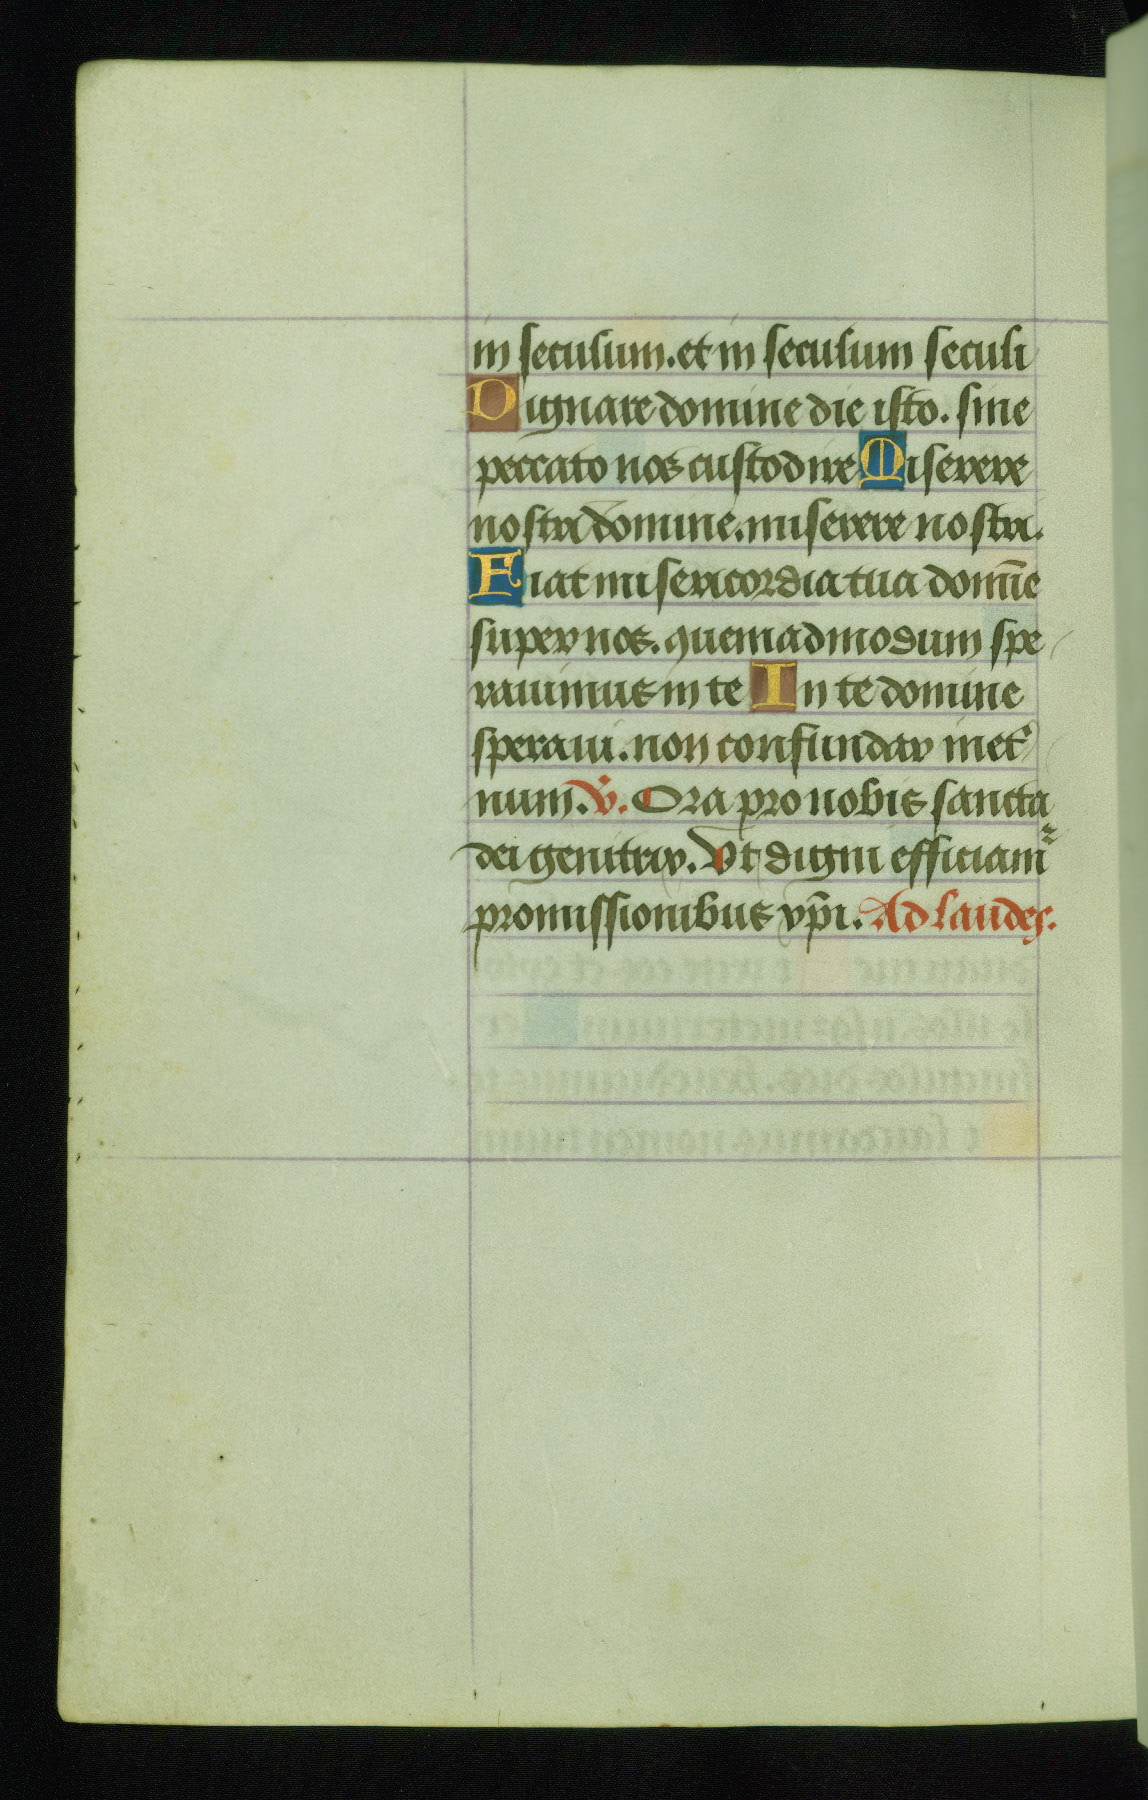 in seculum. et in seculum seculi
Dignare domine die isto. sine
peccato nos custodire Miserere
nostri domine. miserere nostri.
Fiat misericordia tua domīe
super nos. quemadmodum spe
rauimus in te In te domine
speraui. non confundar in et̾
num. v̄. Ora pro nobis sancta
dei genitrix. Vt digni efficiam᷑
promissionibus xp̄i. Ad laudes.